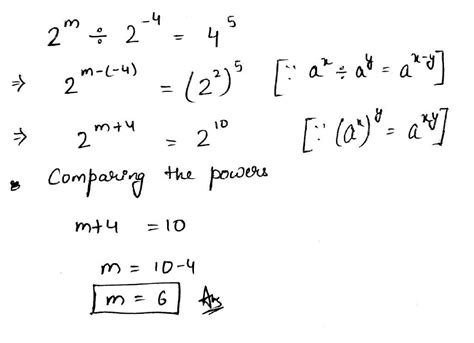 2^m ÷ 2^-4 = 4^5
⇒ 2^m-(-4) = (2^2)^5 [∵ a^x ÷ a^y = a^x-y]
⇒ 2^m+4 = 2^10 [∵ (a^x)^y = a^xy]
Comparing the powers
m+4 = 10
m = 10-4
m = 6 Ans